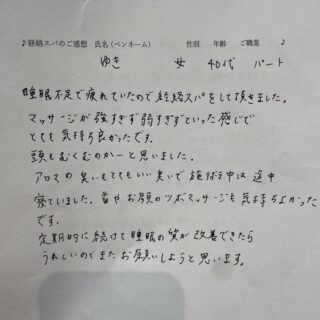 ♪経絡スパのご感想 氏名(ペンネーム) 性別 年齢 ご職業 ♪
ゆき 女 40代 パート
睡眠不足で疲れていたので経絡スパをして頂きました。
マッサージが強すぎず弱すぎずといった感じで
とても気持ち良かったです。
頭もむくむのかーと思いました。
アロマの匂いもとてもいい匂いで施術中は途中
寝ていました。首やお顔のツボマッサージも気持ちよかった
です。
定期的に続けて睡眠の質が改善できたら
うれしいのでまたお願いしようと思います。